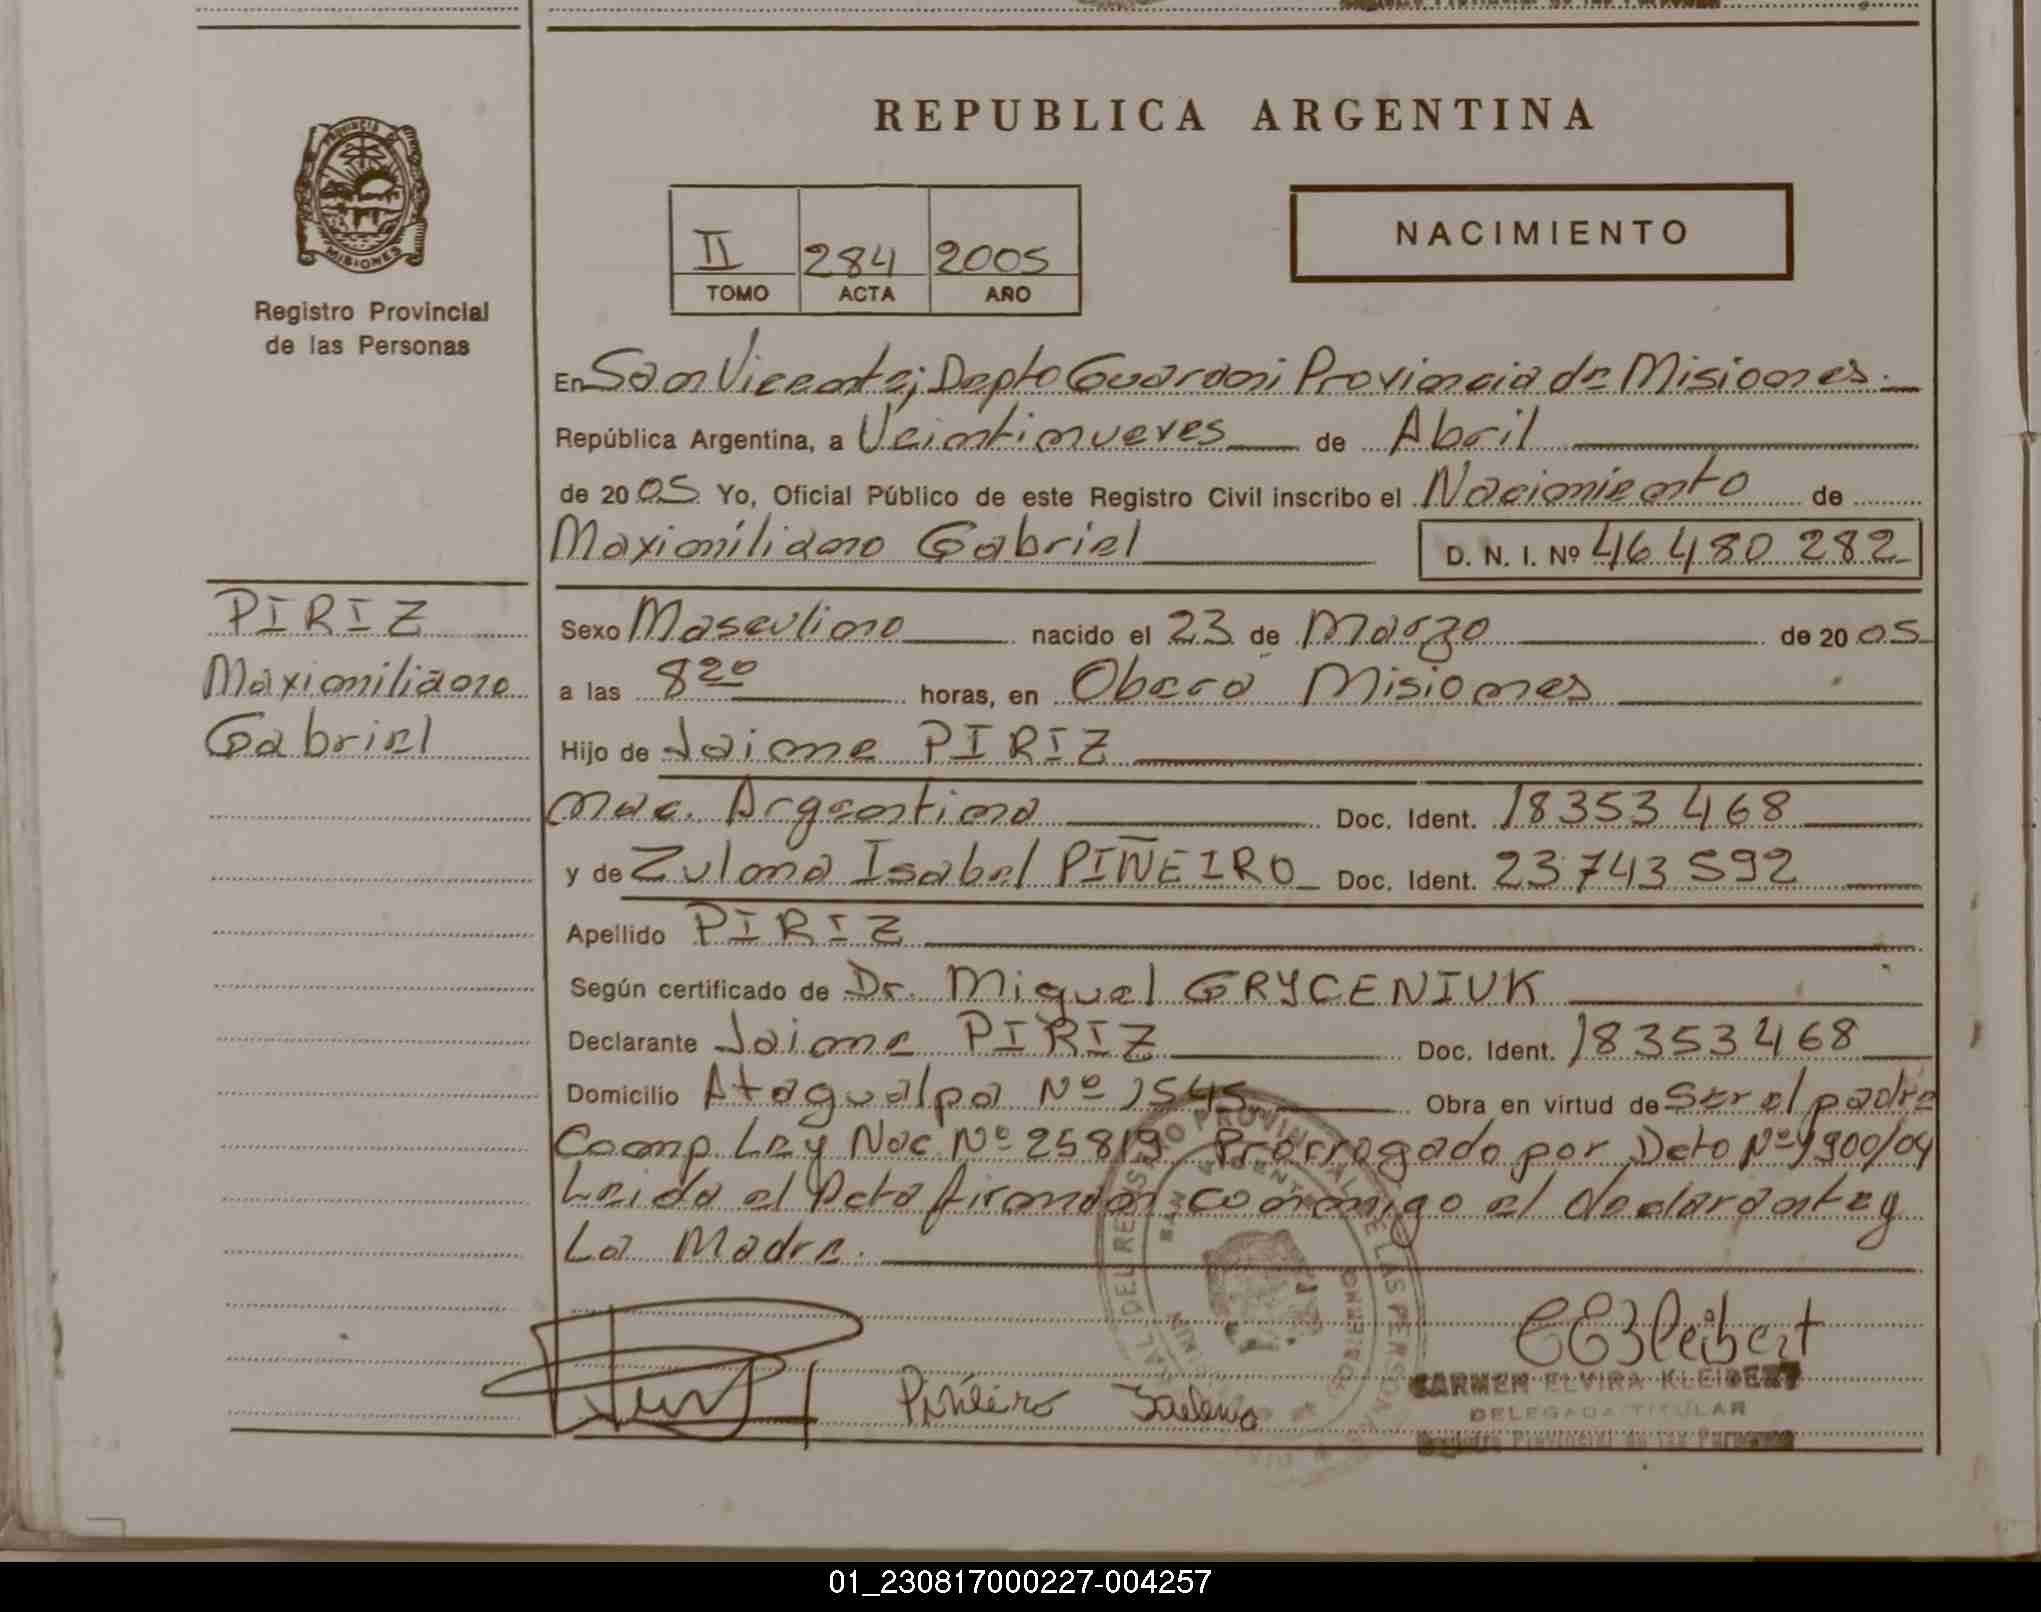 REPUBLICA ARGENTINA
PROVINCIA DE
MISIONES
Registro Provincial
de las Personas
II 284 2005
TOMO ACTA AÑO
NACIMIENTO
En San Vicente; Depto Guarani Provincia de Misiones.
República Argentina, a Veintinueves de Abril
de 2005 Yo, Oficial Público de este Registro Civil inscribo el Nacimiento de
Maximiliano Gabriel D. N. I. Nº 46.480.282
PIRIZ
Maximiliano
Gabriel
Sexo Masculino nacido el 23 de Marzo de 2005
a las 8 20 horas, en Oberá Misiones
Hijo de Jaime PIRIZ
nac. Argentina Doc. Ident. 18353468
y de Zulma Isabel PIÑEIRO Doc. Ident. 23.743.592
Apellido PIRIZ
Según certificado de Dr. Miguel GRYCENIUK
Declarante Jaime PIRIZ Doc. Ident. 18353468
Domicilio Atagualpa Nº 1545 Obra en virtud de Ser el padre
Comp. Ley Nac Nº 25819 Prorrogado por Dcto Nº 1900/04
Leida el Acta firman conmigo el declarante y
La Madre.
Piñeiro Zulma
CEKleibert
CARMEN ELVIRA KLEIBERT
DELEGADA TITULAR
Registro Provincial de las Personas
01_230817000227-004257